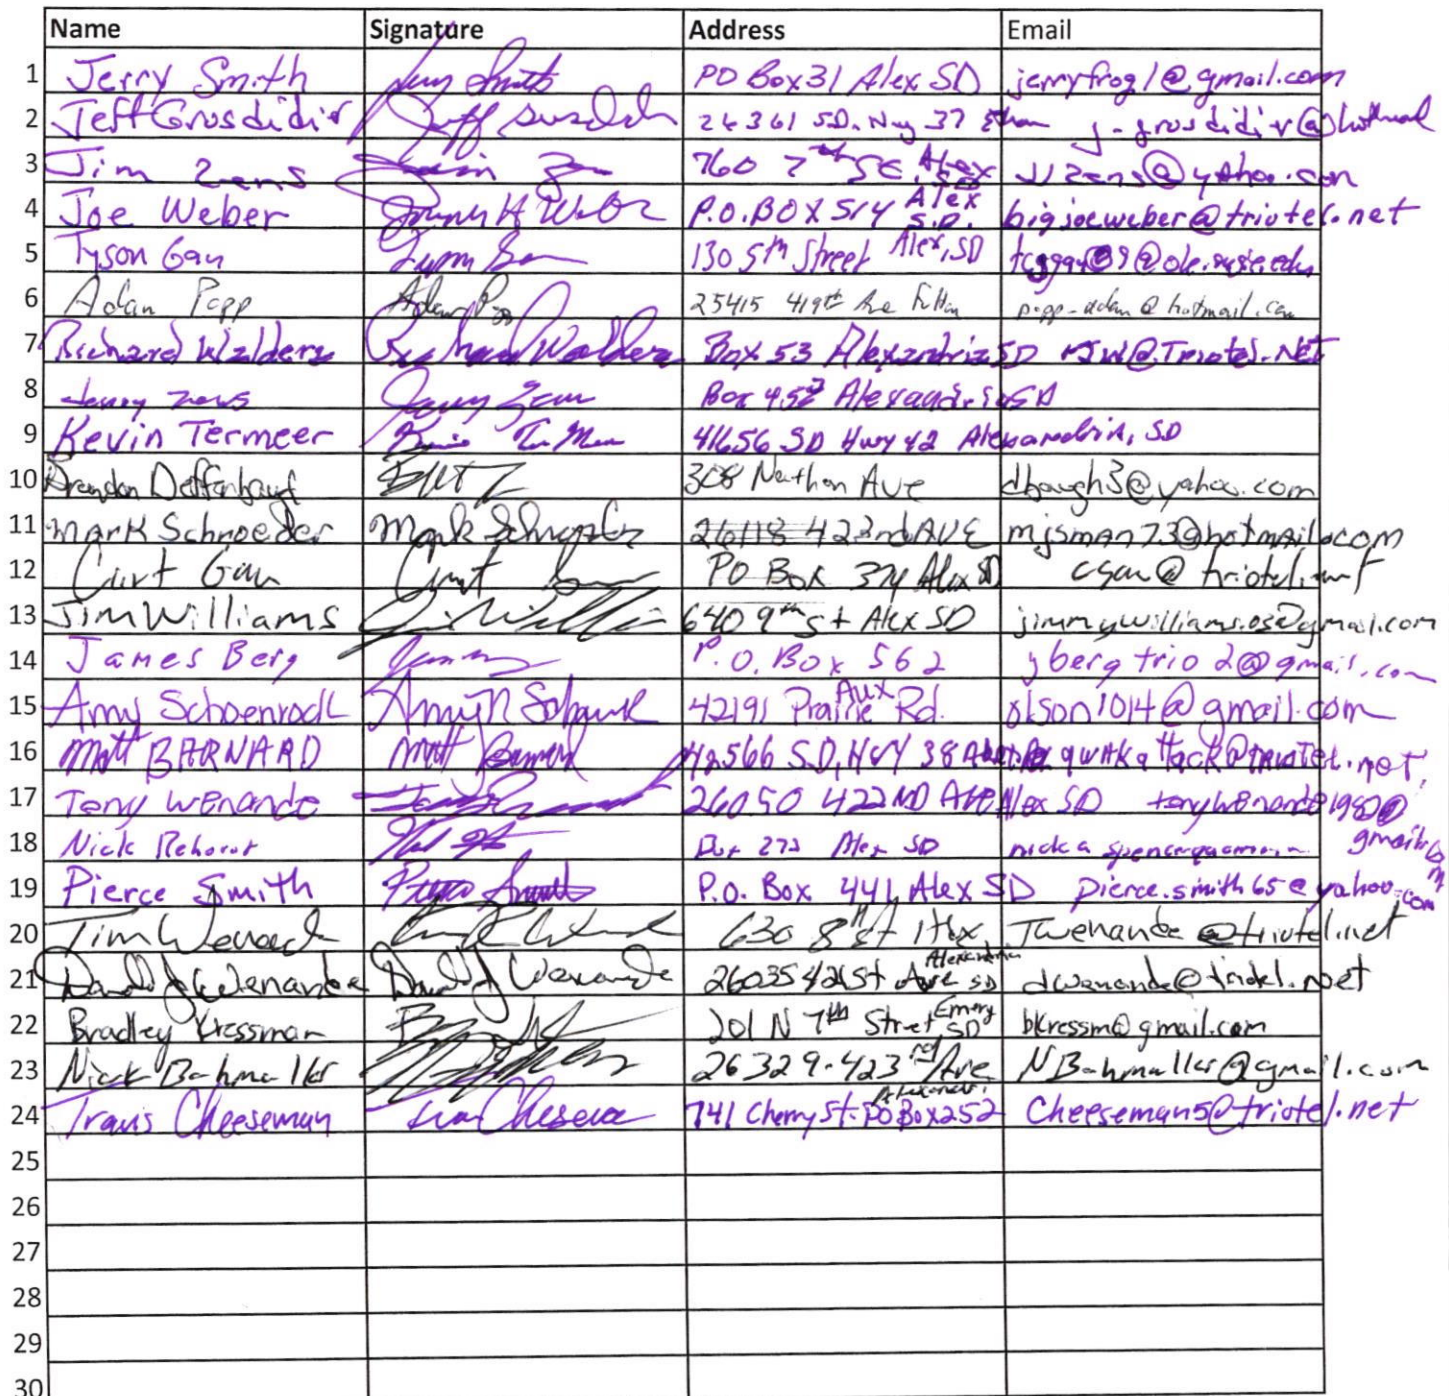 Name Signature Address Email
1 Jerry Smith Jerry Smith PO Box 31 Alex SD jerryfrog1@gmail.com
2 Jeff Grosdidier Jeff 26361 S.D. Hwy 37 Ethan
3 Jim Zens Jim Zens 760 7th St. Alex SD jjzens@yahoo.com
4 Joe Weber Joseph H Weber P.O. BOX 514 Alex S.D. bigjoeweber@triotel.net
5 Tyson Gau Tyson Gau 130 5th Street Alex, SD
6 Adam Popp Adam Popp 25415 419th Ave Fulton popp-adam@hotmail.com
7 Richard Walders Richard Walders Box 53 Alexandria SD rjw@Triotel.Net
8 Zens Box Alexandria SD
9 Kevin Termeer 41656 SD Hwy 42 Alexandria, SD
10 Brendon Deffenbaugh 308 Nathan Ave dbaugh3@yahoo.com
11 Mark Schroeder Mark Schroeder 26118 423rd AVE mjsman73@hotmail.com
12 Curt Gau Curt Gau PO Box 374 Alex SD cgau@triotel.net
13 Jim Williams Jim Williams 640 9th St Alex SD jimmywilliams.03@gmail.com
14 James Berg P.O. Box 562 jbergtrio2@gmail.com
15 Amy Schoenrock Amy N 42191 Prairie Rd. Alex olson1014@gmail.com
16 Matt BARNARD Matt Barnard S.D. HWY 38
17 Tony Wenande 26050 422ND Ave Alex SD tonywenande1980@gmail.com
18 Nick Box 272 Alex SD
19 Pierce Smith Pierce Smith P.O. Box 441 Alex SD pierce.smith65@yahoo.com
20 Tim Wenande 630 8th St Alex Twenande@triotel.net
21 David J Wenande David J Wenande 26035 421st Ave Alexandria SD dwenande@triotel.net
22 Bradley Kressman 201 N 7th Street Emery SD bkressm@gmail.com
23 Nick Bahmuller 26329-423rd Ave Alexandria NBahmuller@gmail.com
24 Travis Cheeseman 741 Cherry St. PO Box 252 Cheeseman5@triotel.net
25
26
27
28
29
30